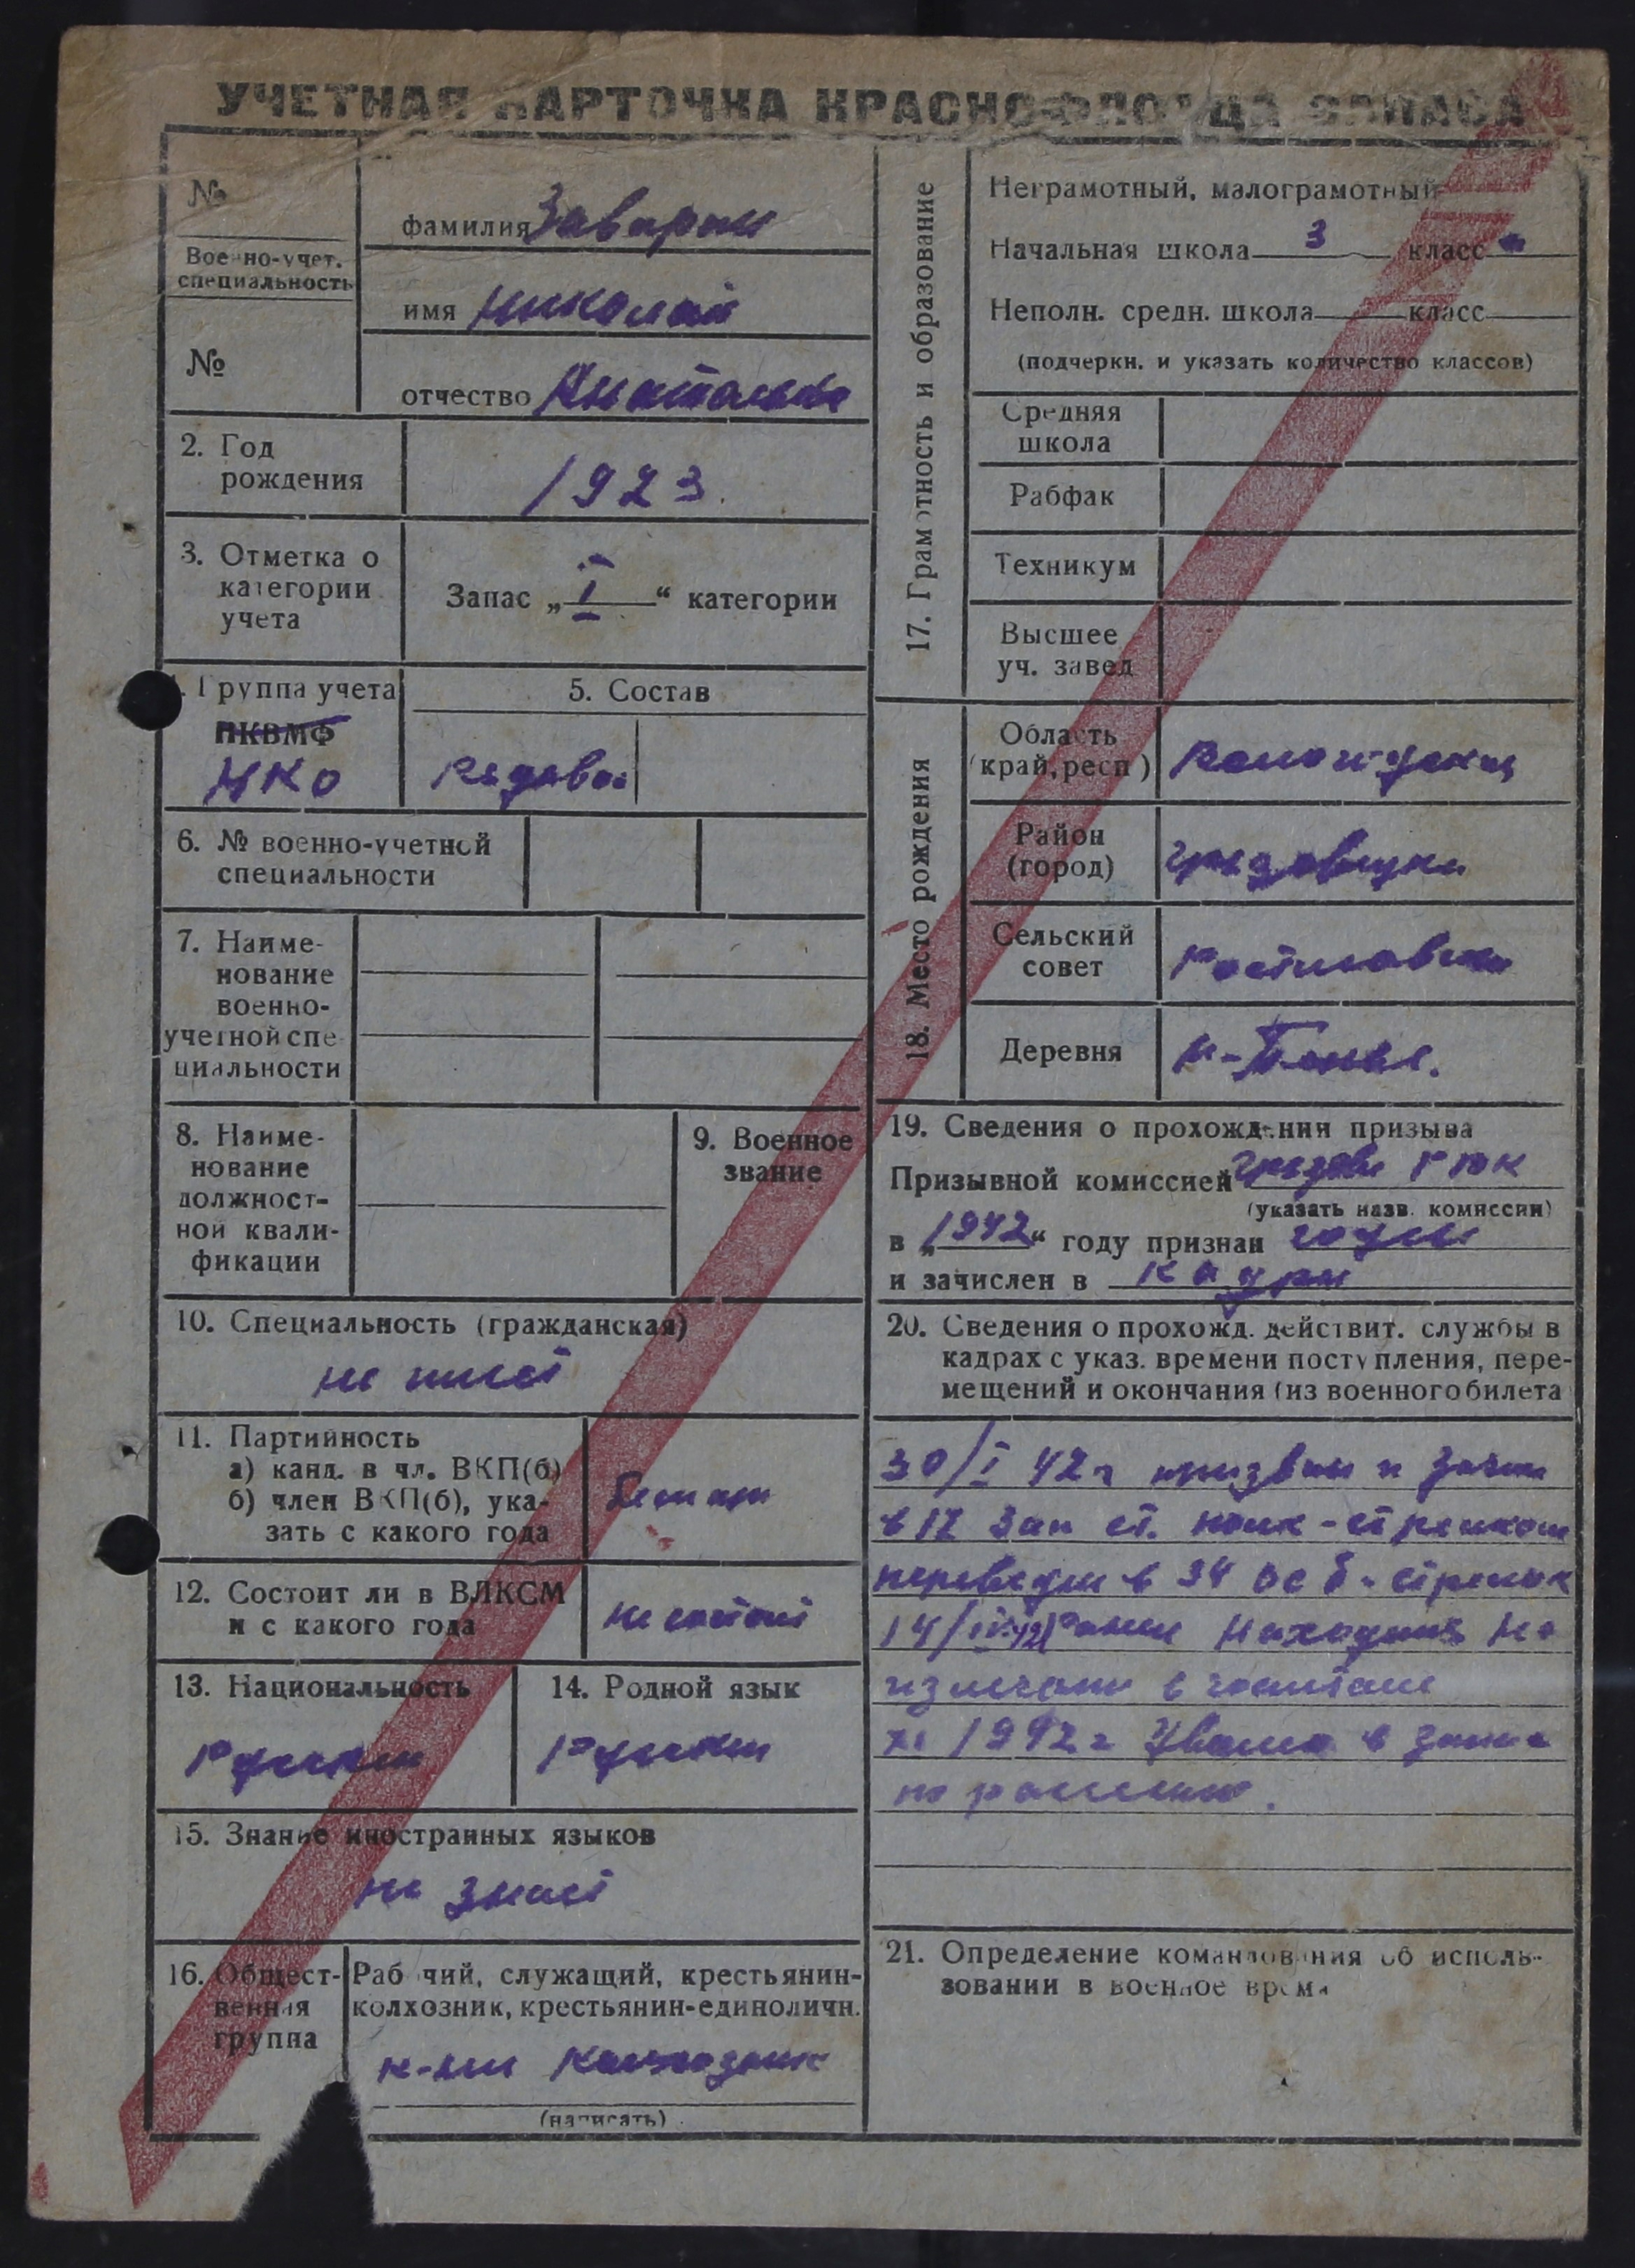 УЧЕТНАЯ КАРТОЧКА КРАСНОФЛОТЦА ЗАПАСА
№
Военно-учет.
специальность
№
фамилия Заварин
имя Николай
отчество
2. Год
рождения
1923.
3. Отметка о
категории
учета
Запас „I“ категории
4. Группа учета
НКВМФ
НКО
5. Состав
Рядовой
6. № военно-учетной
специальности
7. Наиме-
нование
военно-
учетной спе
циальности
8. Наиме-
нование
должност-
ной квали-
фикации
9. Военное
звание
10. Специальность (гражданская)
не имеет
11. Партийность
а) канд. в чл. ВКП(б)
б) член ВКП(б), ука-
зать с какого года
12. Состоит ли в ВЛКСМ
и с какого года
не состоит
13. Национальность
Русский
14. Родной язык
Русский
15. Знание иностранных языков
не знает
16. Общест-
венная
группа
Рабочий, служащий, крестьянин-
колхозник, крестьянин-единоличн.
колхозник
(написать)
17. Грамотность и образование
Неграмотный, малограмотный
Начальная школа 3 класс
Неполн. средн. школа класс
(подчеркн. и указать количество классов)
Средняя
школа
Рабфак
Техникум
Высшее
уч. завед
18. Место рождения
Область
(край, респ)
Вологодская
Район
(город)
Грязовецкий
Сельский
совет
Ростиловский
Деревня
19. Сведения о прохождении призыва
Призывной комиссией Грязов РВК
(указать назв. комиссии)
в „1942“ году признан годен
и зачислен в кадры
20. Сведения о прохожд. действит. службы в
кадрах с указ. времени поступления, пере-
мещений и окончания (из военного билета
30/I 42 г призван и зачис
в 12 зап ст. полк - стрелком
переведен в 34 - стрелк
14/ ранен находился на
излечении в госпитале
XI 1942 г Уволен в запас
по ранению.
21. Определение командования об исполь-
зовании в военное время